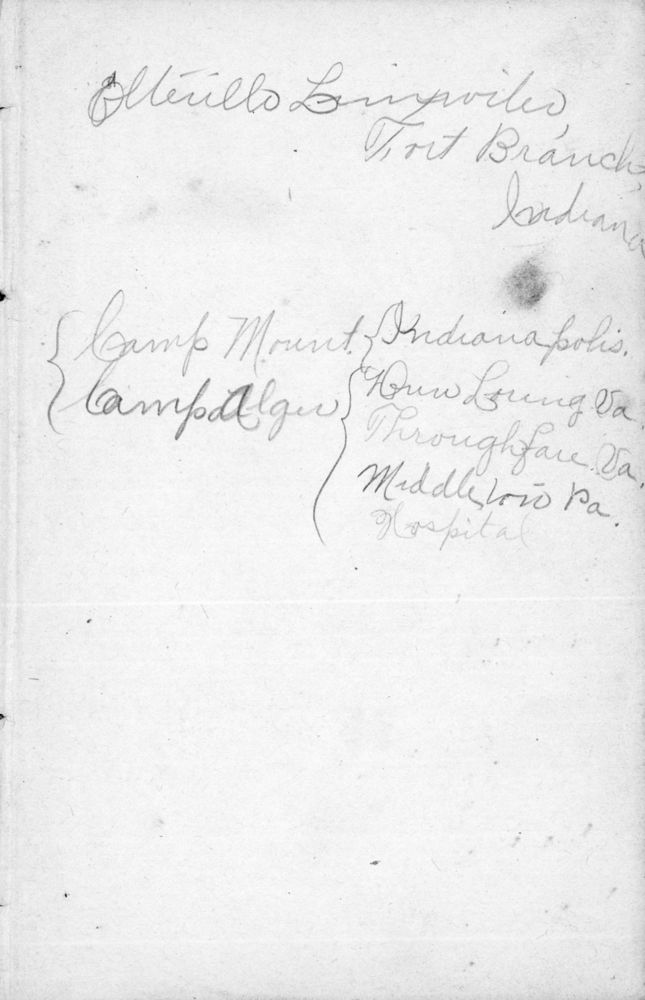 Fort Branch,
Indiana
Camp Mount { Indianapolis.
Camp Alger { Dun Loring Va.
Throughfare Va.
Middletown Pa.
Hospital